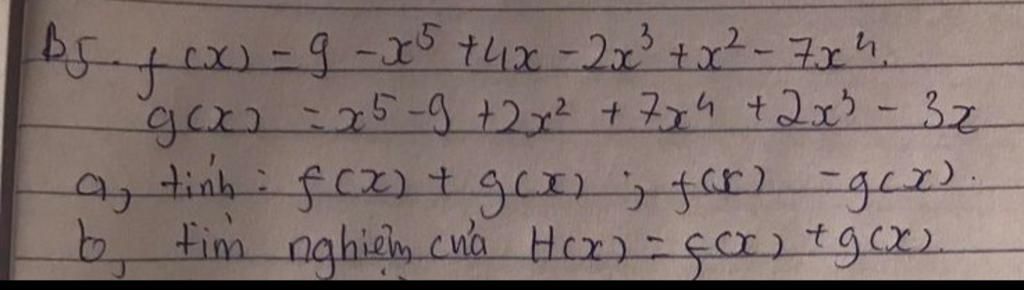 B5. f(x) = 9 - x⁵ + 4x - 2x³ + x² - 7x⁴.
g(x) = x⁵ - 9 + 2x² + 7x⁴ + 2x³ - 3x
a, tính : f(x) + g(x) ; f(x) - g(x).
b, tìm nghiệm của H(x) = f(x) + g(x).